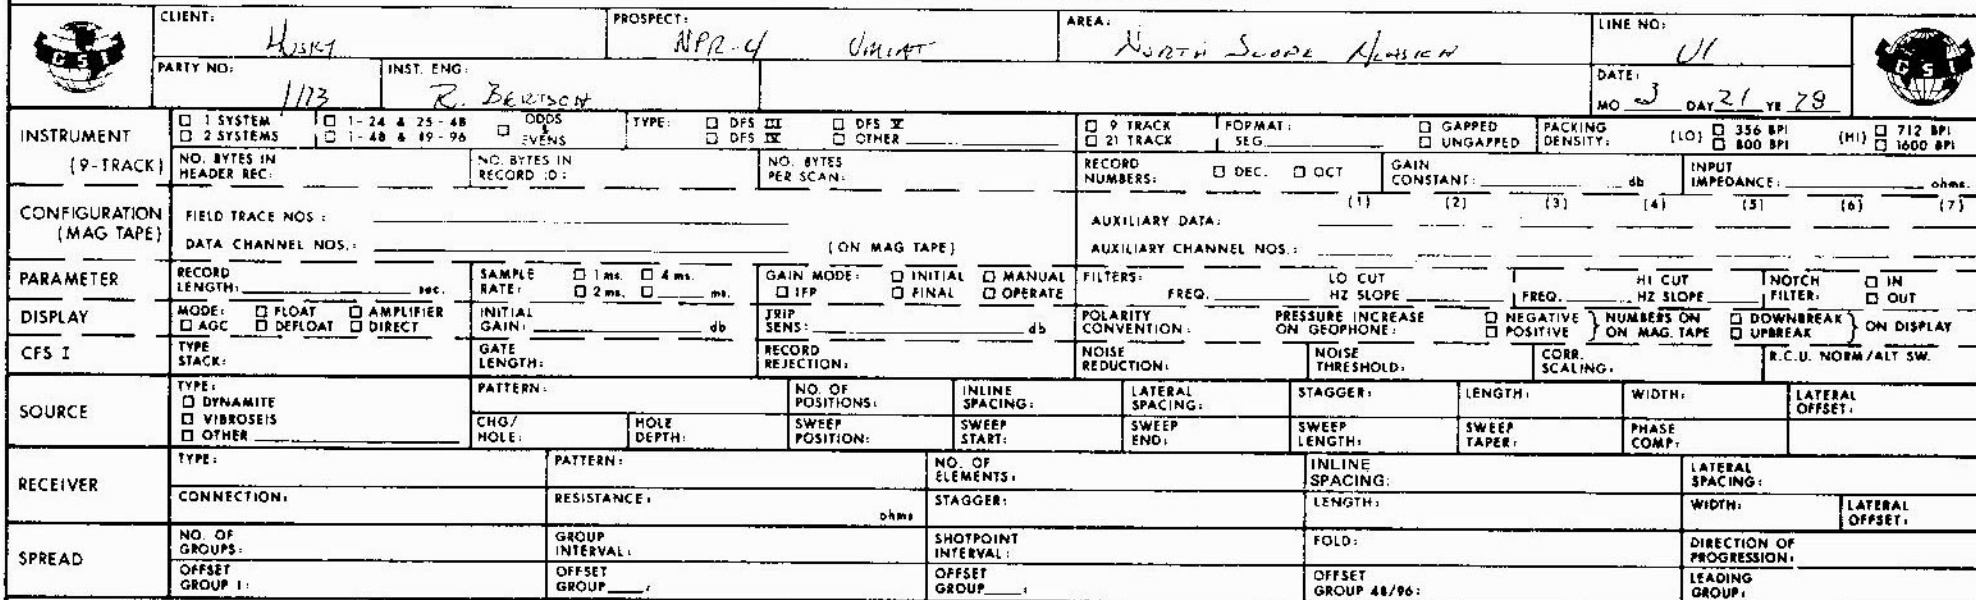 CLIENT: Husky PROSPECT: NPR-4 UMIAT AREA: North Slope Alaska LINE NO: U1
PARTY NO: 1173 INST. ENG: R. BERTSCH DATE: MO 3 DAY 21 YR 78
GSI GSI
INSTRUMENT □ 1 SYSTEM □ 1 - 24 & 25 - 48 □ ODDS & EVENS TYPE: □ DFS III □ DFS V □ 9 TRACK FORMAT: □ GAPPED PACKING DENSITY: (LO) □ 356 BPI (HI) □ 712 BPI
□ 2 SYSTEMS □ 1 - 48 & 49 - 96 □ DFS IV □ OTHER □ 21 TRACK SEG □ UNGAPPED □ 800 BPI □ 1600 BPI
(9-TRACK) NO. BYTES IN HEADER REC: NO. BYTES IN RECORD ID: NO. BYTES PER SCAN: RECORD NUMBERS: □ DEC. □ OCT GAIN CONSTANT: db INPUT IMPEDANCE: ohms.
CONFIGURATION FIELD TRACE NOS: AUXILIARY DATA: (1) (2) (3) (4) (5) (6) (7)
(MAG TAPE) DATA CHANNEL NOS.: (ON MAG TAPE) AUXILIARY CHANNEL NOS.:
PARAMETER RECORD LENGTH: sec. SAMPLE RATE: □ 1 ms. □ 4 ms. □ 2 ms. □ ms. GAIN MODE: □ INITIAL □ MANUAL □ IFP □ FINAL □ OPERATE FILTERS: LO CUT FREQ. HZ SLOPE HI CUT FREQ. HZ SLOPE NOTCH FILTER: □ IN □ OUT
DISPLAY MODE: □ FLOAT □ AMPLIFIER □ AGC □ DEFLOAT □ DIRECT INITIAL GAIN: db TRIP SENS: db POLARITY CONVENTION: PRESSURE INCREASE ON GEOPHONE: □ NEGATIVE □ POSITIVE } NUMBERS ON ON MAG. TAPE □ DOWNBREAK □ UPBREAK } ON DISPLAY
CFS I TYPE STACK: GATE LENGTH: RECORD REJECTION: NOISE REDUCTION: NOISE THRESHOLD: CORR. SCALING: R.C.U. NORM/ALT SW.
SOURCE TYPE: □ DYNAMITE □ VIBROSEIS □ OTHER PATTERN: NO. OF POSITIONS: INLINE SPACING: LATERAL SPACING: STAGGER: LENGTH: WIDTH: LATERAL OFFSET:
CHG/HOLE: HOLE DEPTH: SWEEP POSITION: SWEEP START: SWEEP END: SWEEP LENGTH: SWEEP TAPER: PHASE COMP:
RECEIVER TYPE: PATTERN: NO. OF ELEMENTS: INLINE SPACING: LATERAL SPACING:
CONNECTION: RESISTANCE: ohms STAGGER: LENGTH: WIDTH: LATERAL OFFSET:
SPREAD NO. OF GROUPS: GROUP INTERVAL: SHOTPOINT INTERVAL: FOLD: DIRECTION OF PROGRESSION:
OFFSET GROUP 1: OFFSET GROUP : OFFSET GROUP : OFFSET GROUP 48/96: LEADING GROUP: